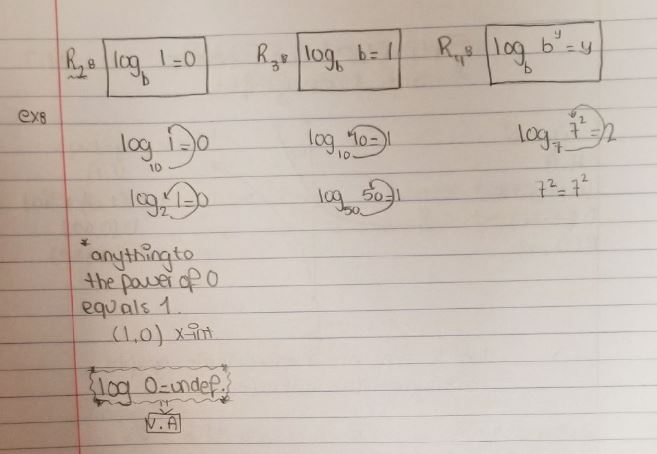 R₂: log_b 1=0 R₃: log_b b=1 R₄: log_b b^y=y
ex:
log₁₀ 1=0 log₁₀ 10=1 log₇ 7²=2
log₂ 1=0 log₅₀ 50=1 7²=7²
*anything to
the power of 0
equals 1.
(1,0) x-int
log 0=undef.
V.A